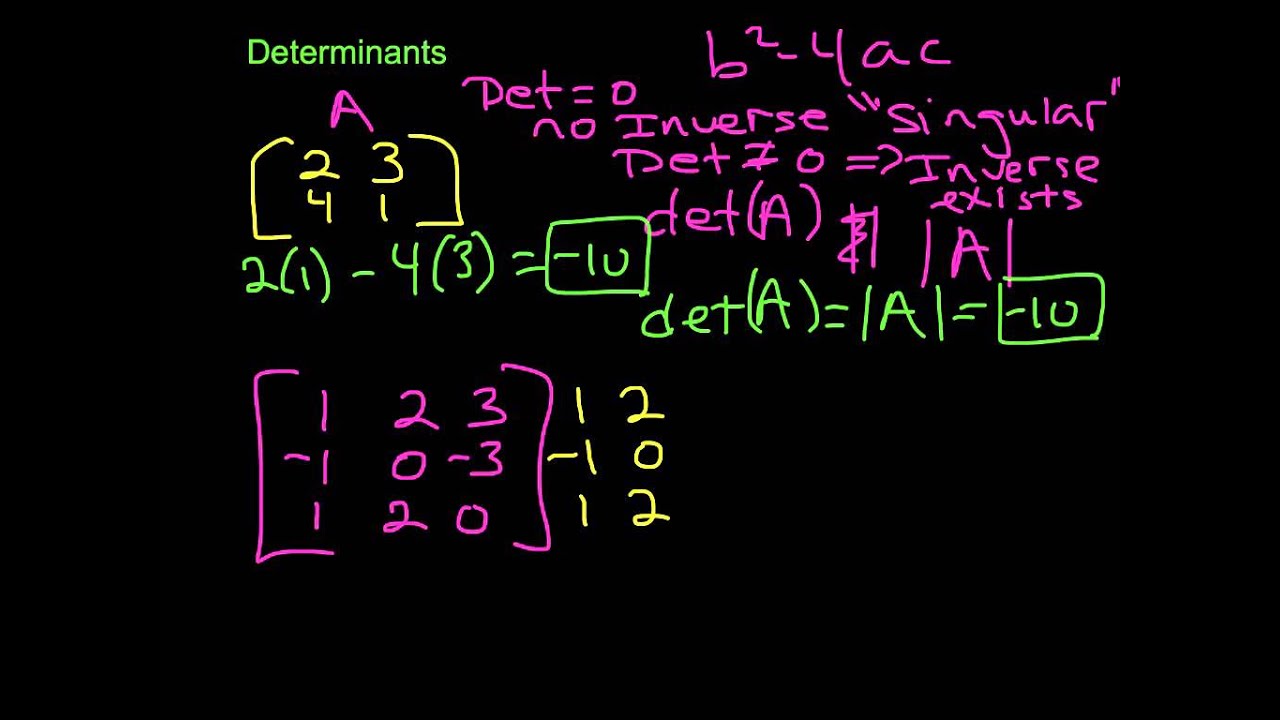 Determinants
b²-4ac
A
Det = 0
no Inverse "Singular"
Det ≠ 0 => Inverse
exists
2 3
4 1
det(A) |A|
2(1) - 4(3) = -10
det(A) = |A| = -10
1 2 3 1 2
-1 0 -3 -1 0
1 2 0 1 2